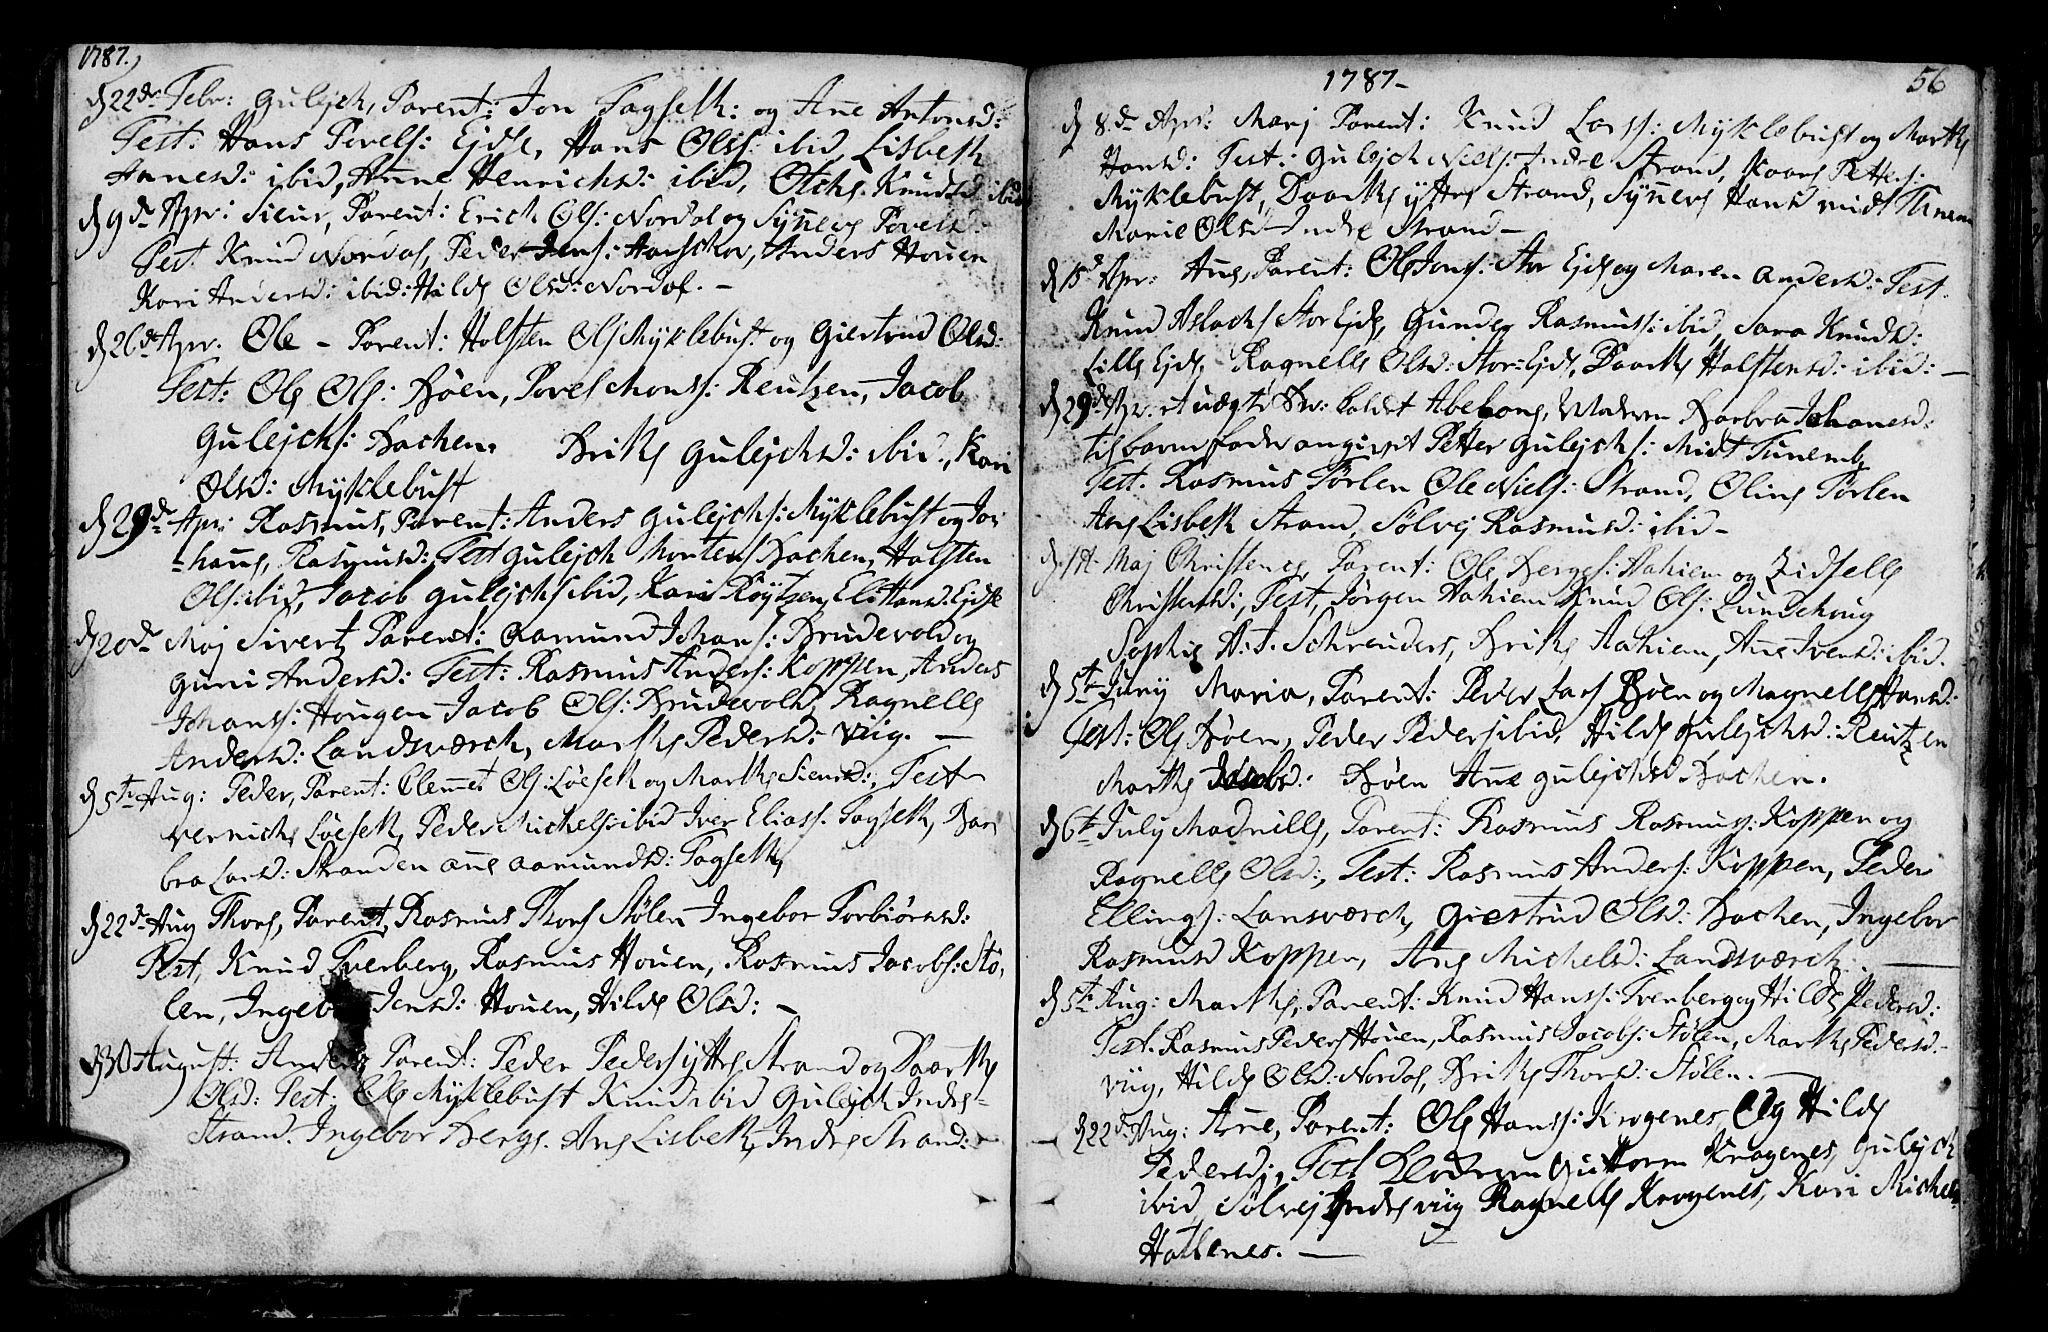 1787.
d 22de Febr: Gulejch, Parent: Jon Fagseth: og Ane Antonsd:
Test: Hans Povels: Ejde, Hans Ols: ibid, Lisbeth
Annesd: ibid, Anne Henrichsd: ibid, Knudsd ibid
d 9de Apr: Siur, Parent: Erich Ols: Nordal og Synneve Povelsd:
Test. Knud Nordal, Peder Jens: Hauschov, Anders Houen
Kari Andersd: ibid: Hilde Olsd: Nordal. -
d 26de Apr. Ole - Parent: Holsten Ols Myklebust og Giertrud Olsd:
Test: Ole Ols: Bøen, Povel Mons: Reutzen, Jacob
Gulejchs: Bachen. Brithe Gulejchsd: ibid, Kari
Olsd: Myklebust
d 29de Apr: Rasmus, Parent: Anders Gulejchs: Myklebust og Jo,
hane, Rasmusd: Test Gulejch Bachen, Holsten
Ols: ibid, Jacob Gulejchs ibid, Kari Røytzen, Eli Hansd. Ejde
d 20de Maj Sivert, Parent: Aamund Johans: Brudevold og
Guri Andersd: Test: Rasmus Anders: Koppen, Anders
Johans: Hougen Jacob Ols: Brudevold, Ragnelle
Andersd: Landsværch, Marthe Pedersd: Viig. -
d 5te Aug: Peder, Parent: Clemmet Ols: Løeseth og Marthe Siursd:, Test
Vernich Løeseth, Peder Michels: ibid Iver Elias: Fagseth, Bar
bra Larsd: Stranden Ane Aamundsd: Fagseth,
d 22de Aug Thore, Parent, Rasmus Thors Stølen Ingebor Torbiørnsd:
Test, Knud Tverberg, Rasmus Houen, Rasmus Jacobs: Stø,
len, Ingebor Jensd: Houen, Hilde Olsd: -
d 30 August: Anders Parent: Peder Peders yttre Strand og Daarthe
Olsd: Test: Ole Myklebust Knud ibid Gulejch Indre
Strand. Ingebor Berge. Ane Lisbeth, Indre Strand:
1787-
56
d 8de Apr: Marj Parent: Knud Lars: Myklebust og Marthe
Hansd: Test: Gulejch Niels: Indre Strand, Petters:
Myklebust, Daarthe yttre Strand, Synneve Hansd midt
Marie Olsd Indre Strand -
d 15de Apr: Ane, Parent: Ole Jons: Stor Ejde og Maren Andersd: Test.
Knud Aslachs Stor Ejde, Gunder Rasmus: ibid, Sara Knudsd:
Lille Ejde, Ragnelle Olsd: Stor: Ejde, Daarthe Holstensd: ibid: -
d 29de Apr. et uægte Bar: kaldet Abelone, Moderen Barbra Johansd:
til barnefader angivet Petter Gulejchs: Midt
Test. Rasmus Pørlen Ole Niels: Strand, Oline Pørlen
Ane Lisbeth Strand, Sølvej Rasmusd: ibid -
d. 1te Maj Parent: Ole Berges: Aahiem og Zidselle
Christensd:, Test, Jørgen Aahiem Knud Ols: Lundehoug
Sophie A. J. Schreuders, Brithe Aahiem, Ane Iversd: ibid.
d 5te Junij Maria, Parent: Peder Lars Bøen og Magnelle Hansd:
Test: Ole Bøen, Peder Peders ibid, Hilde Gulejchsd: Reutzen
Marthe Jacobsd: Bøen Ane Gulejchsd Bachen.
d 6te July Madnille, Parent: Rasmus Rasmus: Koppen og
Ragnelle Olsd:, Test: Rasmus Anders: Koppen, Peder
Ellings: Lansværch, Giertrud Olsd: Bachen, Ingebor
Rasmusd Koppen, Ane Michelsd: Landsværch. -
d 5te Aug: Marthe, Parent: Knud Hans: Tverberg og Hilde Pedersd:
Test. Rasmus Peders Houen, Rasmus Jacobs: Stølen, Marthe Pedersd:
Viig, Hilde Olsd: Nordal, Brithe Thorsd: Stølen. -
d 22de Aug: Ane, Parent: Ole Hans: Krogenes Og Hilde
Pedersd:, Test Guttorm Krogenes, Gulejch
ibid, Sølvej Indre Viig Ragnelle Krogenes, Kari Michels
Hatlenes. -